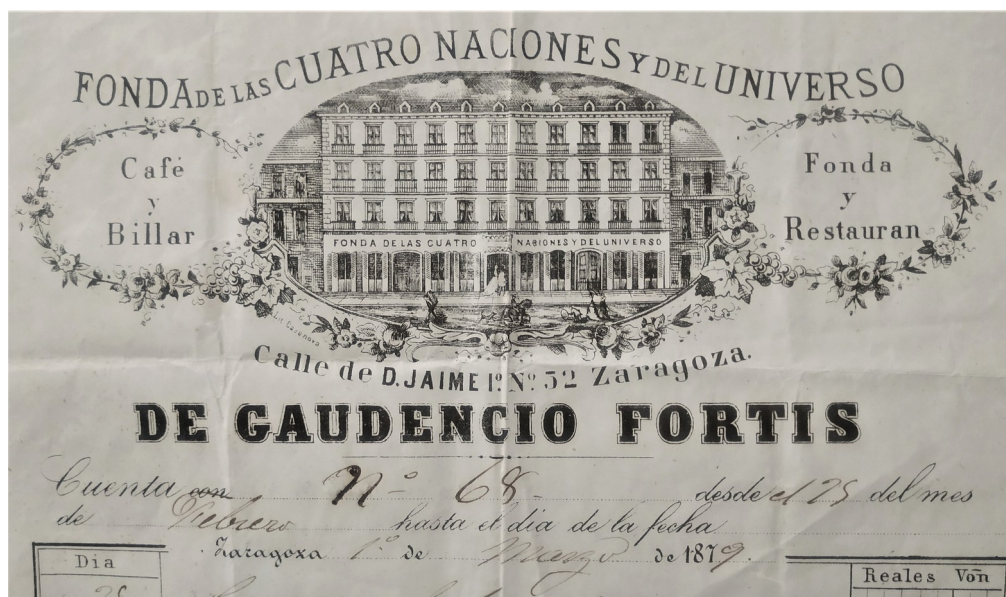 FONDA DE LAS CUATRO NACIONES Y DEL UNIVERSO
Café
y
Billar
Fonda
y
Restauran
FONDA DE LAS CUATRO NACIONES Y DEL UNIVERSO
Calle de D. JAIME 1º. Nº. 52 Zaragoza.
DE GAUDENCIO FORTIS
Cuenta con Nº 68 desde el 25 del mes
de Febrero hasta el dia de la fecha
Zaragoza 1º de Marzo de 1879.
Dia
Reales Vōn